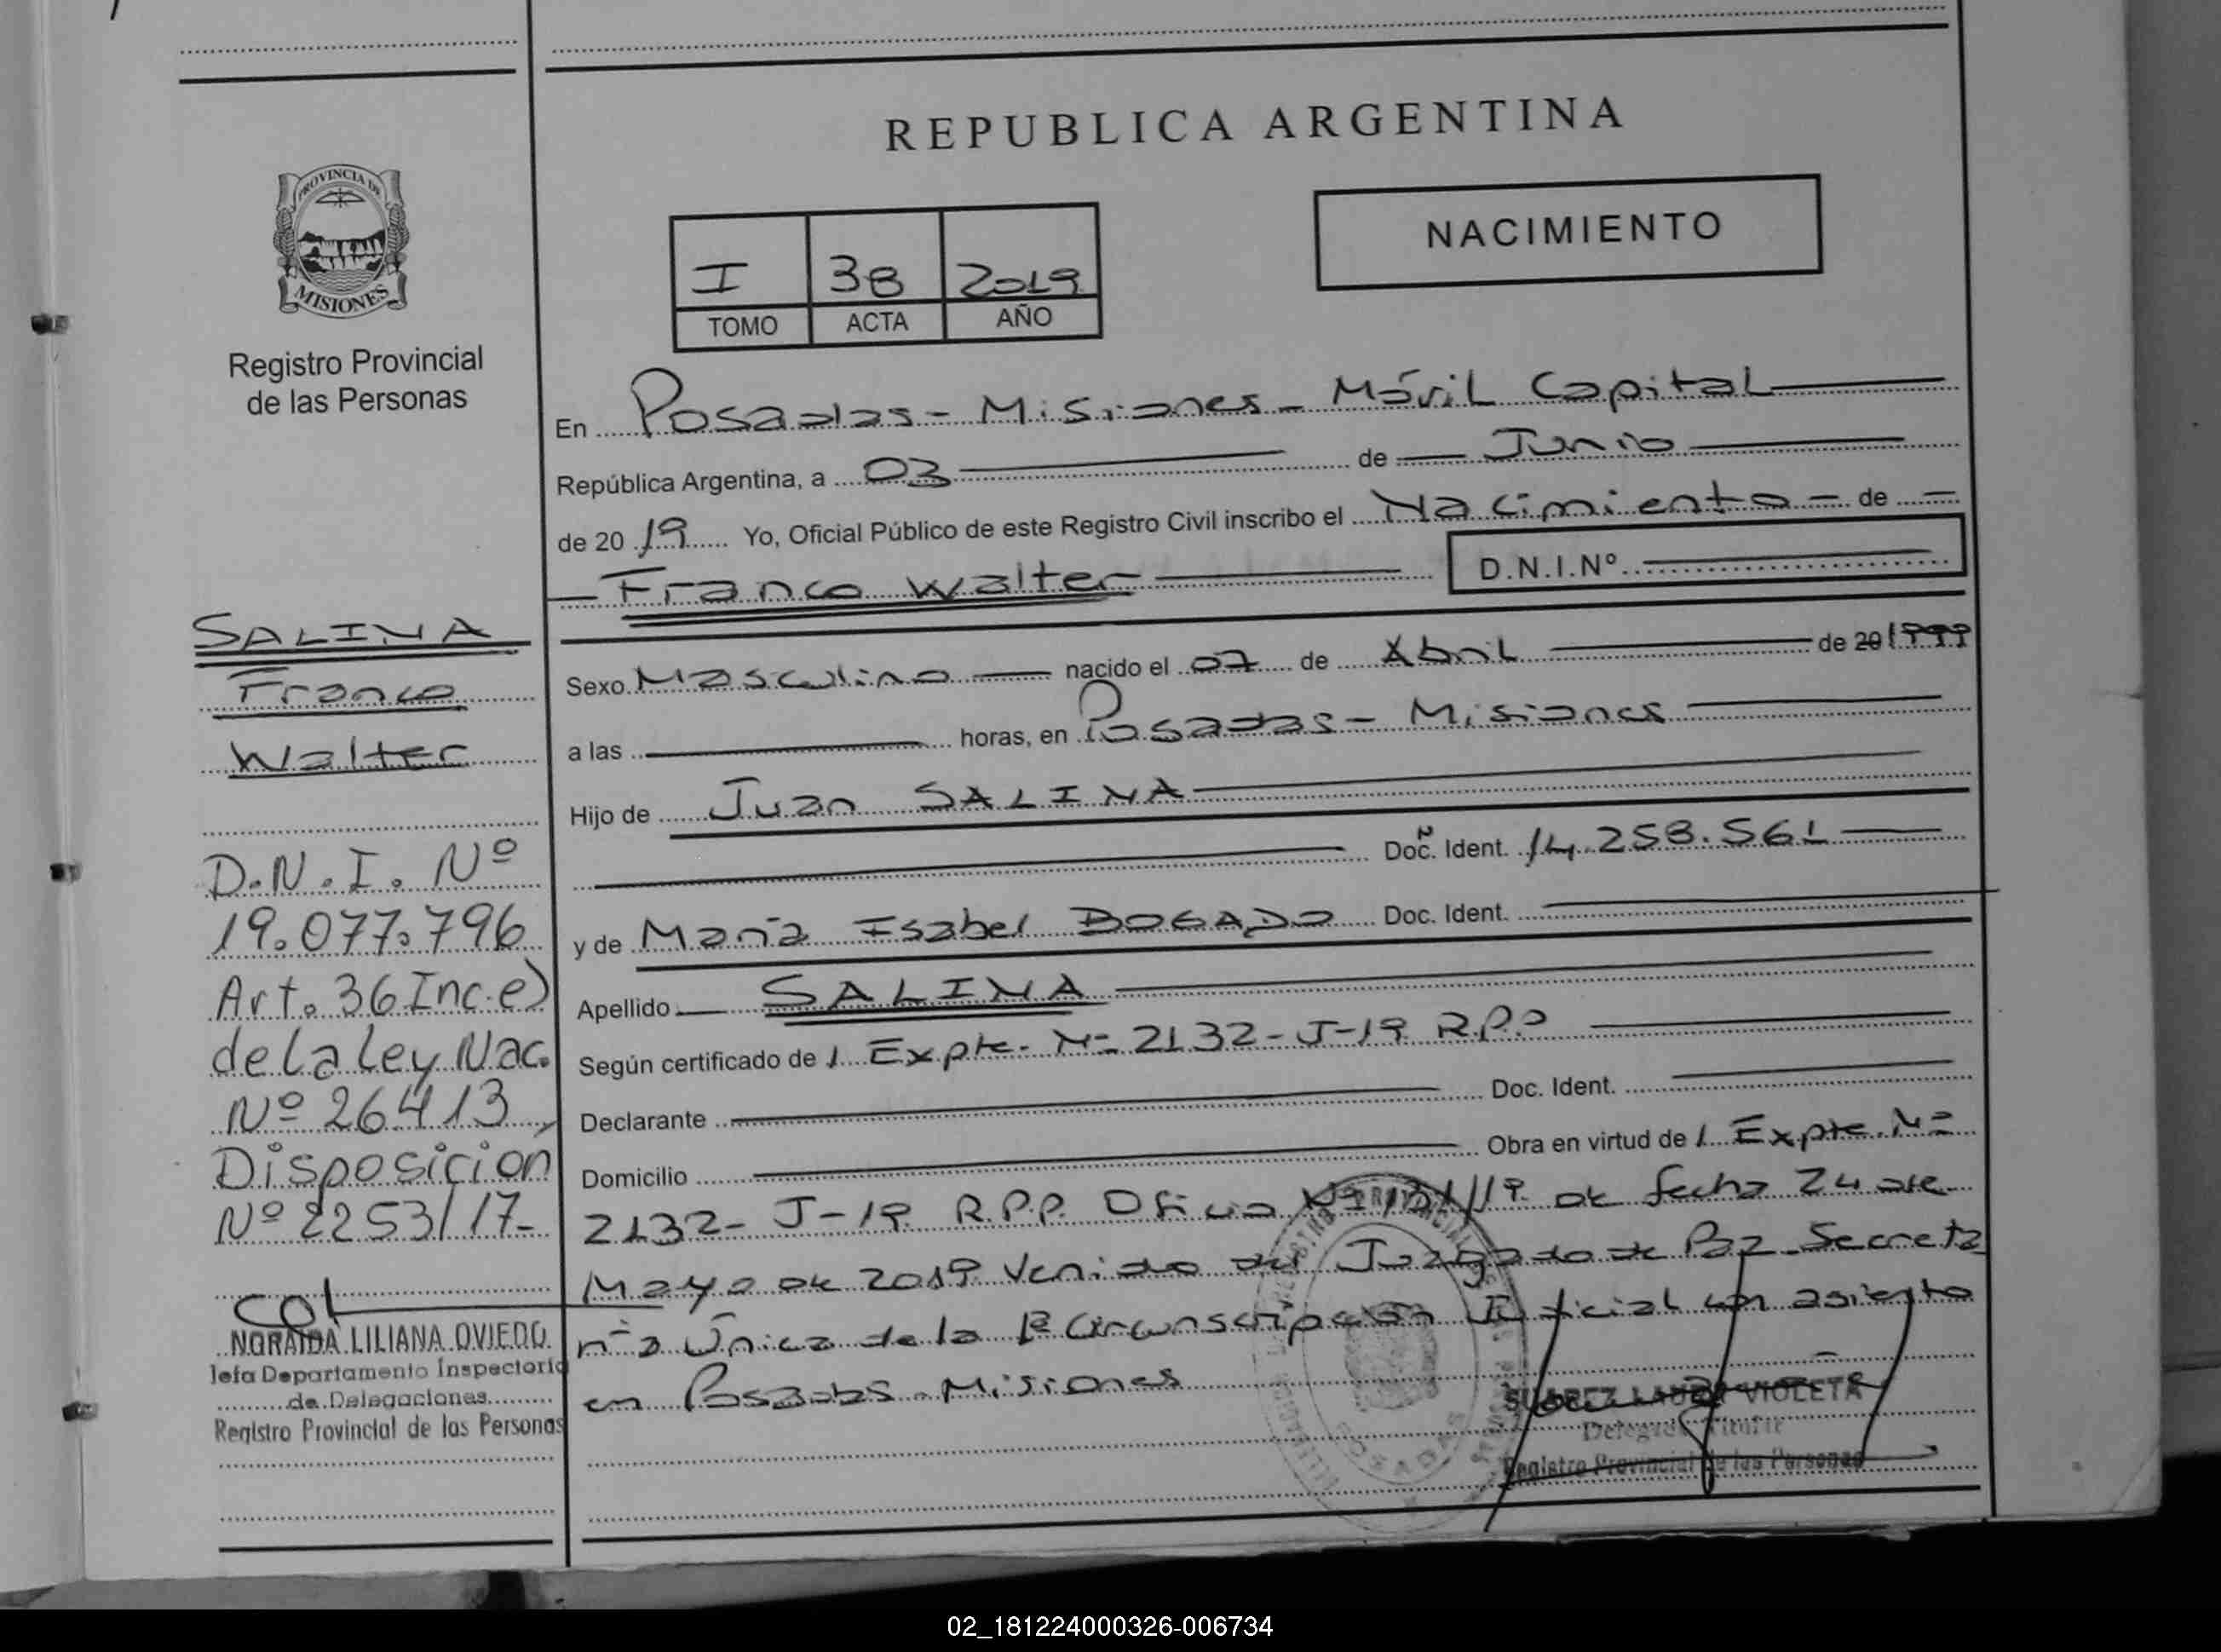 REPUBLICA ARGENTINA
NACIMIENTO
I 38 2019
TOMO ACTA AÑO
PROVINCIA DE
MISIONES
Registro Provincial
de las Personas
SALINA
Franco
Walter
D.N.I. Nº
19.077.796
Art. 36 Inc. e)
de la Ley Nac.
Nº 26413,
Disposicion
Nº 2253/17-
NORAIDA LILIANA OVIEDO
Jefa Departamento Inspectoria
de Delegaciones
Registro Provincial de las Personas
En Posadas - Misiones - Móvil Capital
República Argentina, a 03 de Junio
de 2019 Yo, Oficial Público de este Registro Civil inscribo el Nacimiento - de -
Franco Walter D.N.I.Nº
Sexo Masculino nacido el 07 de Abril de 20 1999
a las horas, en Posadas - Misiones
Hijo de Juan SALINA
Doc. Ident. 14.258.561
y de María Isabel BOGADO Doc. Ident.
Apellido SALINA
Según certificado de / Expte. Nº 2132-J-19 R.P.P
Declarante Doc. Ident.
Domicilio Obra en virtud de / Expte. Nº
2132- J-19 R.P.P. Oficio /19 de fecha 24 de
Mayo de 2019 Venido del Juzgado de Paz Secreta
ría Única de la 1ª Circunscripción Judicial con asiento
en Posadas - Misiones
SUAREZ LAURA VIOLETA
Delegada Titular
Registro Provincial de las Personas
POSADAS
02_181224000326-006734